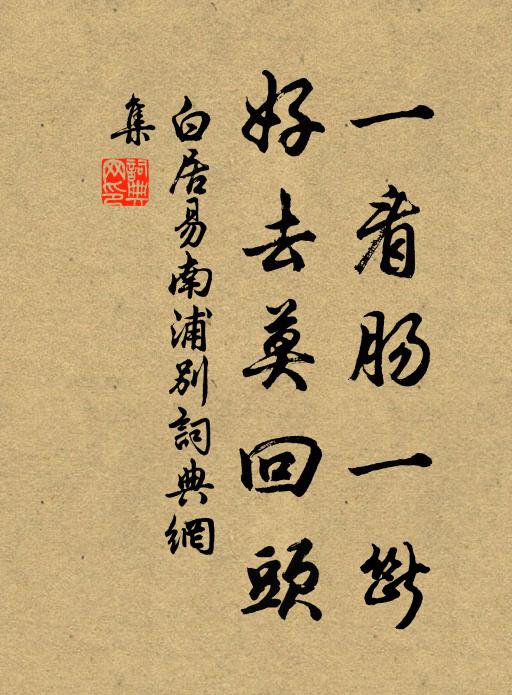 一看肠一斷
好去莫回頭
白居易南浦别詞典網
集
詞典
网印